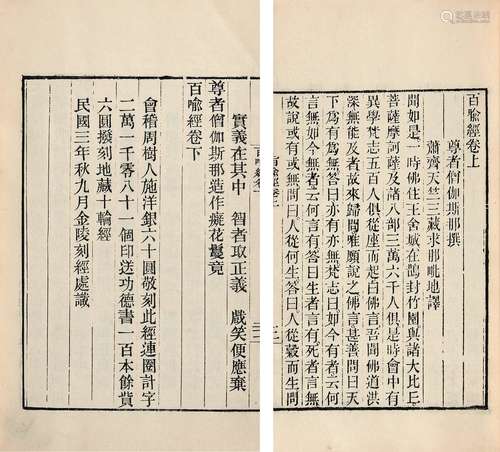 百喻經卷上
尊者僧伽斯那撰
蕭齊天竺三藏求那毗地譯
聞如是一時佛住王舍城在鵲封竹園與諸大比丘
菩薩摩訶薩及諸八部三萬六千人俱是時會中有
異學梵志五百人俱從座而起白佛言吾聞佛道洪
深無能及者故來歸問唯願說之佛言甚善問曰天
下為有為無答曰亦有亦無梵志曰如今有者云何
言無如今無者云何言有答曰生者言有死者言無
故說或有或無問曰人從何生答曰人從穀而生問
實義在其中 智者取正義 戲笑便應棄
尊者僧伽斯那造作癡花鬘竟
百喻經卷下
會稽周樹人施洋銀六十圓敬刻此經連圈計字
二萬一千零八十一個印送功德書一百本餘貲
六圓撥刻地藏十輪經
民國三年秋九月金陵刻經處識